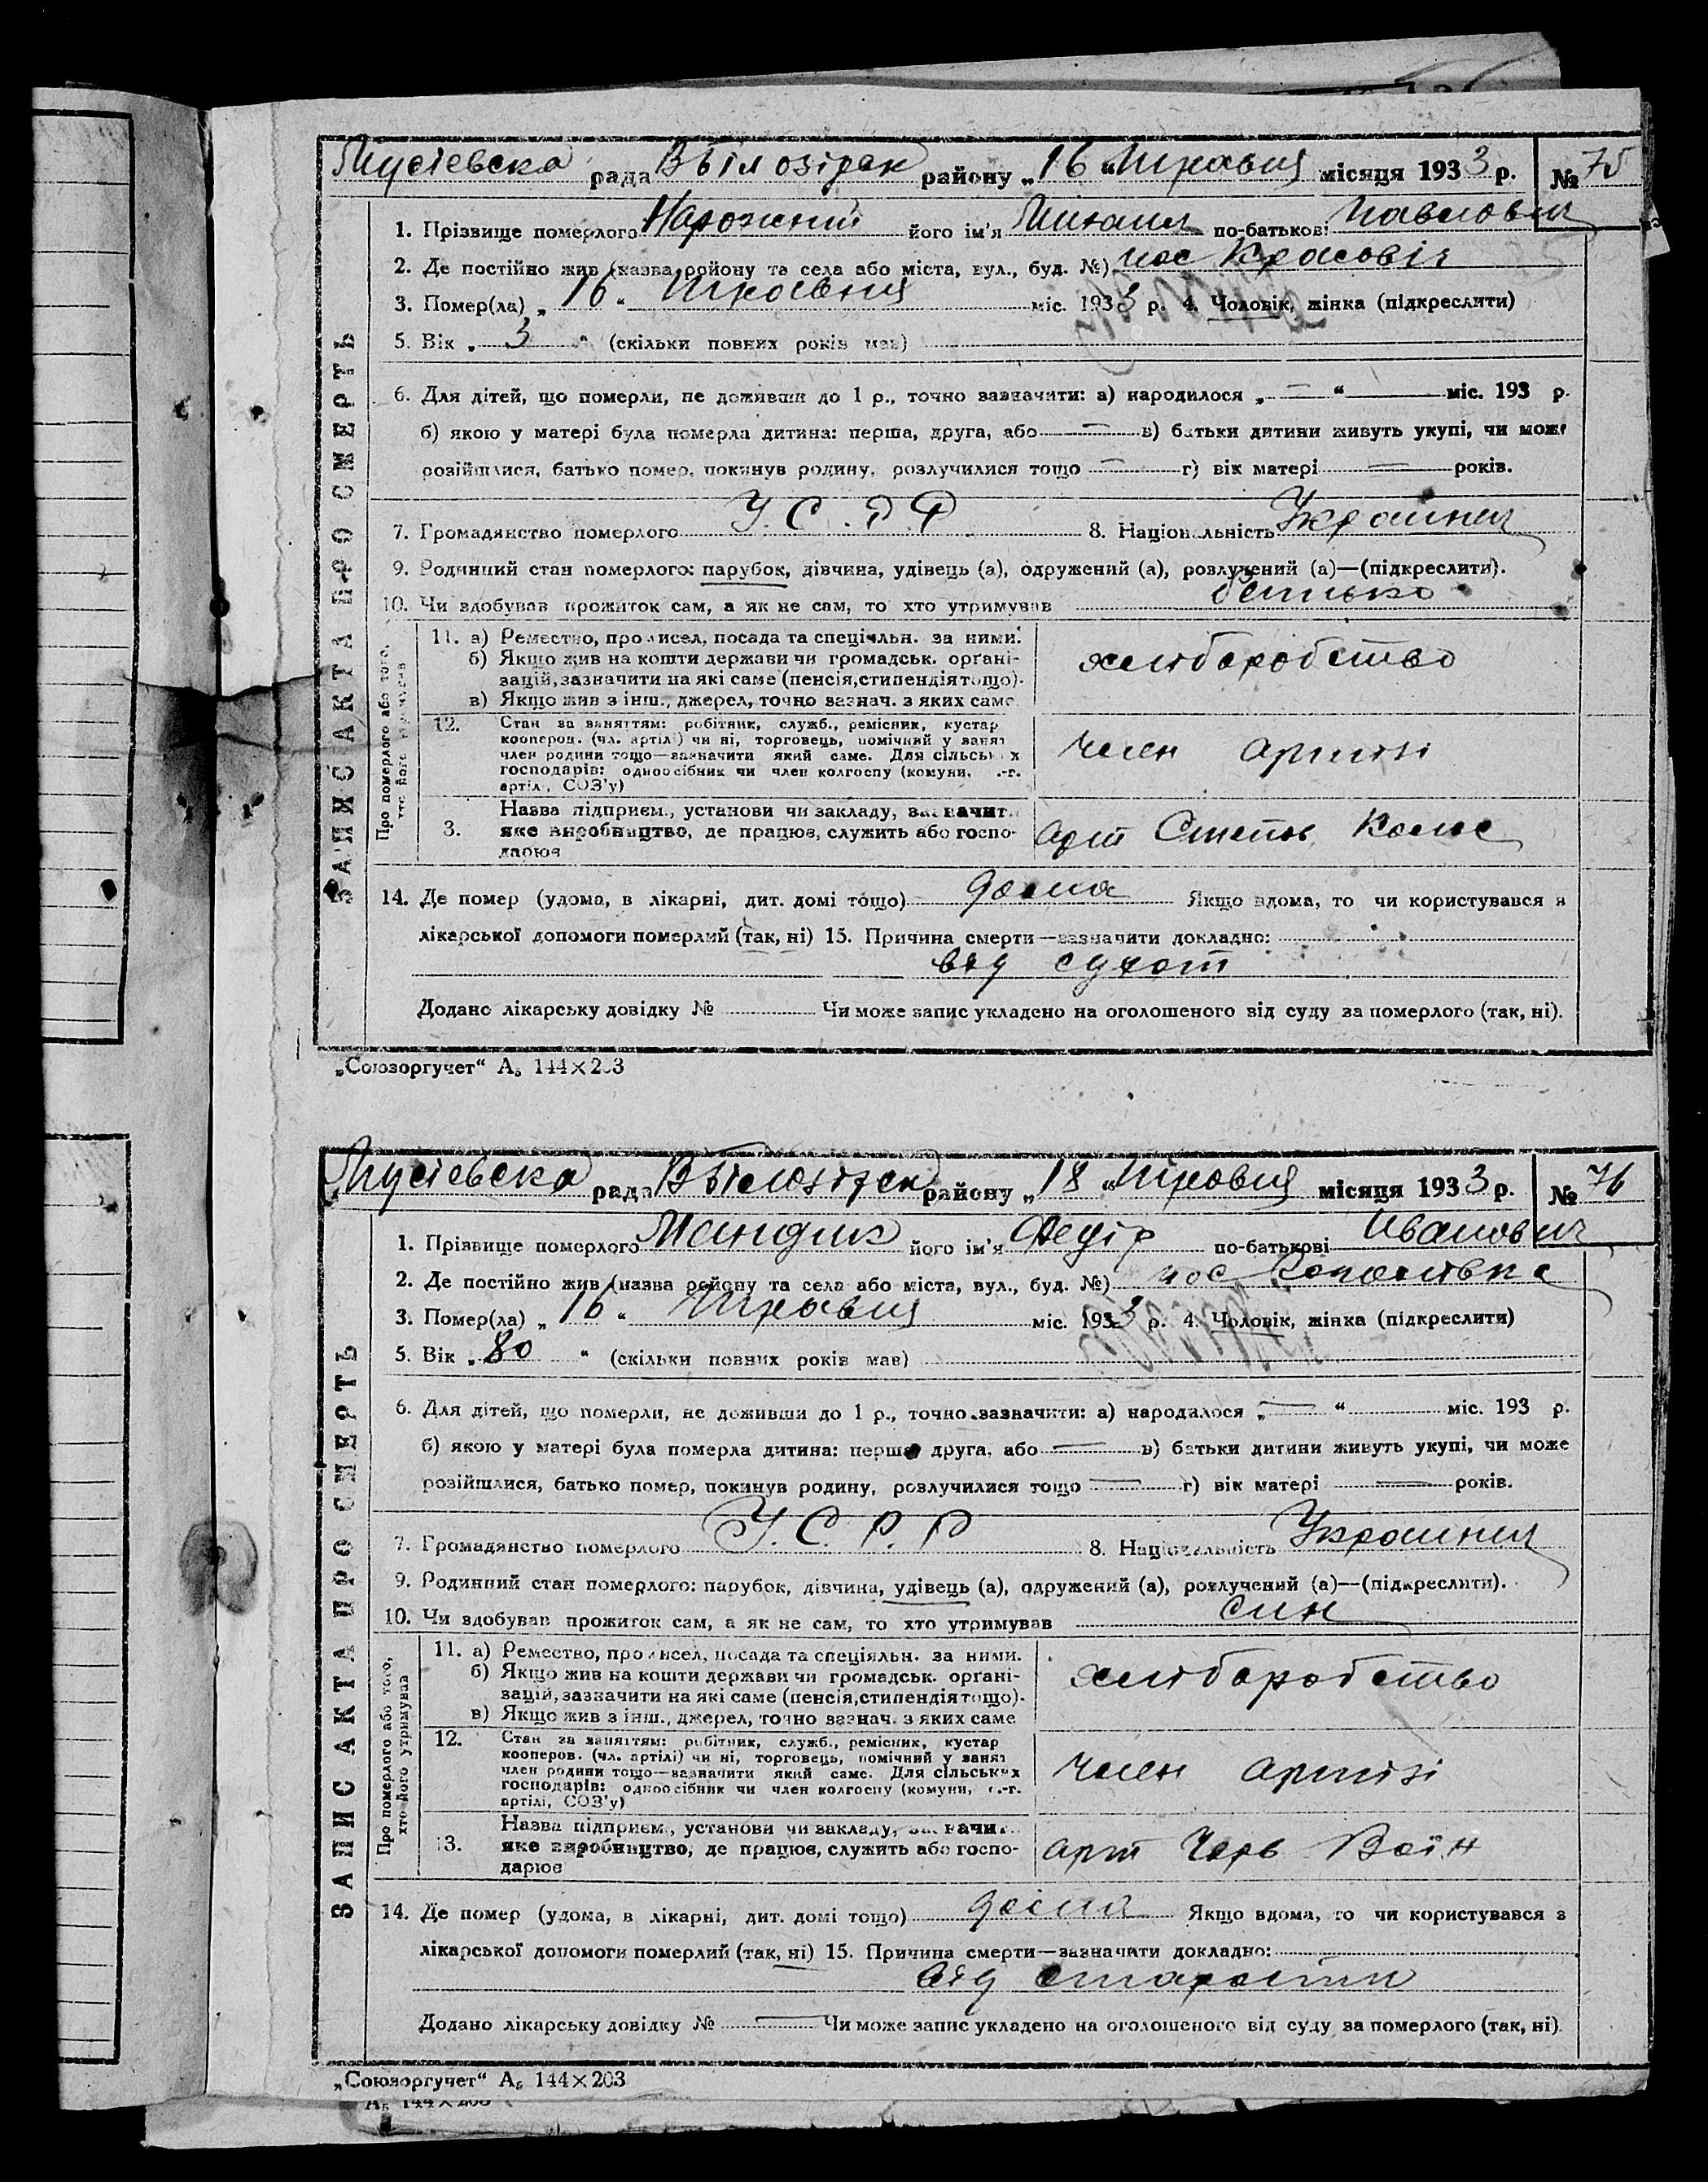 Мусіевска рада В Білозірск району „16“ Травня місяця 1933 р. № 75
ЗАПИС АКТА ПРО СМЕРТЬ
1. Прізвище померлого Нарожний його ім'я Михаил по-батькові Павлович
2. Де постійно жив (назва району та села або міста, вул., буд. №) пос
3. Помер(ла) „16“ Травня міс. 1933 р. 4. Чоловік, жінка (підкреслити)
5. Вік „3“ (скільки повних років мав)
6. Для дітей, що померли, не доживши до 1 р., точно зазначити: а) народилося „—“ міс. 193 р.
б) якою у матері була померла дитина: перша, друга, або — в) батьки дитини живуть укупі, чи може
розійшлися, батько помер, покинув родину, розлучилися тощо — г) вік матері — років.
7. Громадянство померлого У.С.Р.Р 8. Національність Украинец
9. Родинний стан померлого: парубок, дівчина, удівець (а), одружений (а), розлучений (а)—(підкреслити).
10. Чи здобував прожиток сам, а як не сам, то хто утримував батько
Про померлого або того, хто його утримував
11. а) Ремество, промисел, посада та спеціяльн. за ними.
б) Якщо жив на кошти держави чи громадськ. орґані-
зацій, зазначити на які саме (пенсія, стипендія тощо).
в) Якщо жив з інш., джерел, точно зазнач. з яких саме
хліборобство
12. Стан за заняттям: робітник, служб., ремісник, кустар
кооперов. (чл. артілі) чи ні, торговець, помічний у занят
член родини тощо—зазначити який саме. Для сільських
господарів: одноосібник чи член колгоспу (комуни, с.-г.
артілі, СОЗ'у)
член артілі
13. Назва підприєм., установи чи закладу, зазначит
яке виробництво, де працює, служить або госпо-
дарює
арт Степов Колос
14. Де помер (удома, в лікарні, дит. домі тощо) дома Якщо вдома, то чи користувався з
лікарської допомоги померлий (так, ні) 15. Причина смерти—зазначити докладно:
від сухот
Додано лікарську довідку № Чи може запис укладено на оголошеного від суду за померлого (так, ні).
„Союзоргучет“ А₅ 144×203
Мусіевска рада В Білозірск району „18“ Травня місяця 1933 р. № 76
ЗАПИС АКТА ПРО СМЕРТЬ
1. Прізвище померлого Мандик його ім'я Федір по-батькові Иванович
2. Де постійно жив (назва району та села або міста, вул., буд. №) пос
3. Помер(ла) „16“ Травня міс. 1933 р. 4. Чоловік, жінка (підкреслити)
5. Вік „80“ (скільки повних років мав)
6. Для дітей, що померли, не доживши до 1 р., точно зазначити: а) народилося „—“ міс. 193 р.
б) якою у матері була померла дитина: перша друга, або — в) батьки дитини живуть укупі, чи може
розійшлися, батько помер, покинув родину, розлучилися тощо — г) вік матері — років.
7. Громадянство померлого У.С.Р.Р 8. Національність Украинец
9. Родинний стан померлого: парубок, дівчина, удівець (а), одружений (а), розлучений (а)—(підкреслити).
10. Чи здобував прожиток сам, а як не сам, то хто утримував син
Про померлого або того, хто його утримував
11. а) Ремество, промисел, посада та спеціяльн. за ними.
б) Якщо жив на кошти держави чи громадськ. орґані-
зацій, зазначити на які саме (пенсія, стипендія тощо).
в) Якщо жив з інш., джерел, точно зазнач. з яких саме
хліборобство
12. Стан за заняттям: робітник, служб., ремісник, кустар
кооперов. (чл. артілі) чи ні, торговець, помічний у занят
член родини тощо—зазначити який саме. Для сільських
господарів: одноосібник чи член колгоспу (комуни, с.-г.
артілі, СОЗ'у)
член артілі
13. Назва підприєм., установи чи закладу, зазначит
яке виробництво, де працює, служить або госпо-
дарює
арт Черв Воїн
14. Де помер (удома, в лікарні, дит. домі тощо) дома Якщо вдома, то чи користувався з
лікарської допомоги померлий (так, ні) 15. Причина смерти—зазначити докладно:
від старости
Додано лікарську довідку № — Чи може запис укладено на оголошеного від суду за померлого (так, ні)
„Союзоргучет“ А₅ 144×203
А₅ 144×203